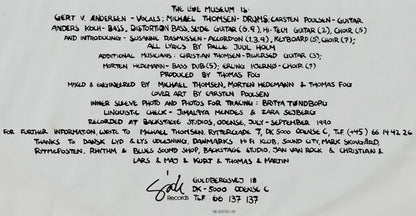 THE LOVE MUSEUM IS:
GERT V. ANDERSEN - VOCALS; MICHAEL THOMSEN - DRUMS; CARSTEN POULSEN - GUITAR
ANDERS KOCH - BASS, DISTORTION BASS, SLIDE GUITAR (6.9), HI-TECH GUITAR (2), CHOIR (5)
AND INTRODUCING - SUSANNE RASMUSSEN - ACCORDION (1,3,4,9), KEYBOARD (5), CHOIR (7);
ALL LYRICS BY PALLE JUUL HOLM
ADDITIONAL MUSICIANS: CHRISTIAN THOMSEN - REVERSED GUITAR (3);
MORTEN HEDEMANN - BASS DUB (5); ERLING BJERNØ - CHOIR (7)
PRODUCED BY THOMAS FOG
MIXED & ENGINEERED BY MICHAEL THOMSEN, MORTEN HEDEMANN & THOMAS FOG
COVER ART BY CARSTEN POULSEN
INNER SLEEVE PHOTO AND PHOTOS FOR TRACING: BRITTA TØNDBORG
LINGUISTIC CHECK - JIMALAYYA MENDES & ZARA SEJBERG
RECORDED AT BACKSTAGE STUDIOS, ODENSE, JULY - SEPTEMBER 1990
FOR FURTHER INFORMATION, WRITE TO MICHAEL THOMSEN, RYTTERGADE 7, DK 5000 ODENSE C, TLF. (+45) 66 14 42 26
THANKS TO DANSK LYD & LYS UDLEJNING, DANMARKS HI FI KLUB, SOUND CITY, MARK SKOVGÅRD,
RYTMEPOSTEN, RHYTHM & BLUES SOUND SHOP, BACKSTAGE STUDIO, JAN VAN ROCK & CHRISTIAN &
LARS & MAJ & KURT & THOMAS & MARTIN
Records
GOLDBERGSVEJ 18
DK - 5000 ODENSE C
TLF. 66 137 137